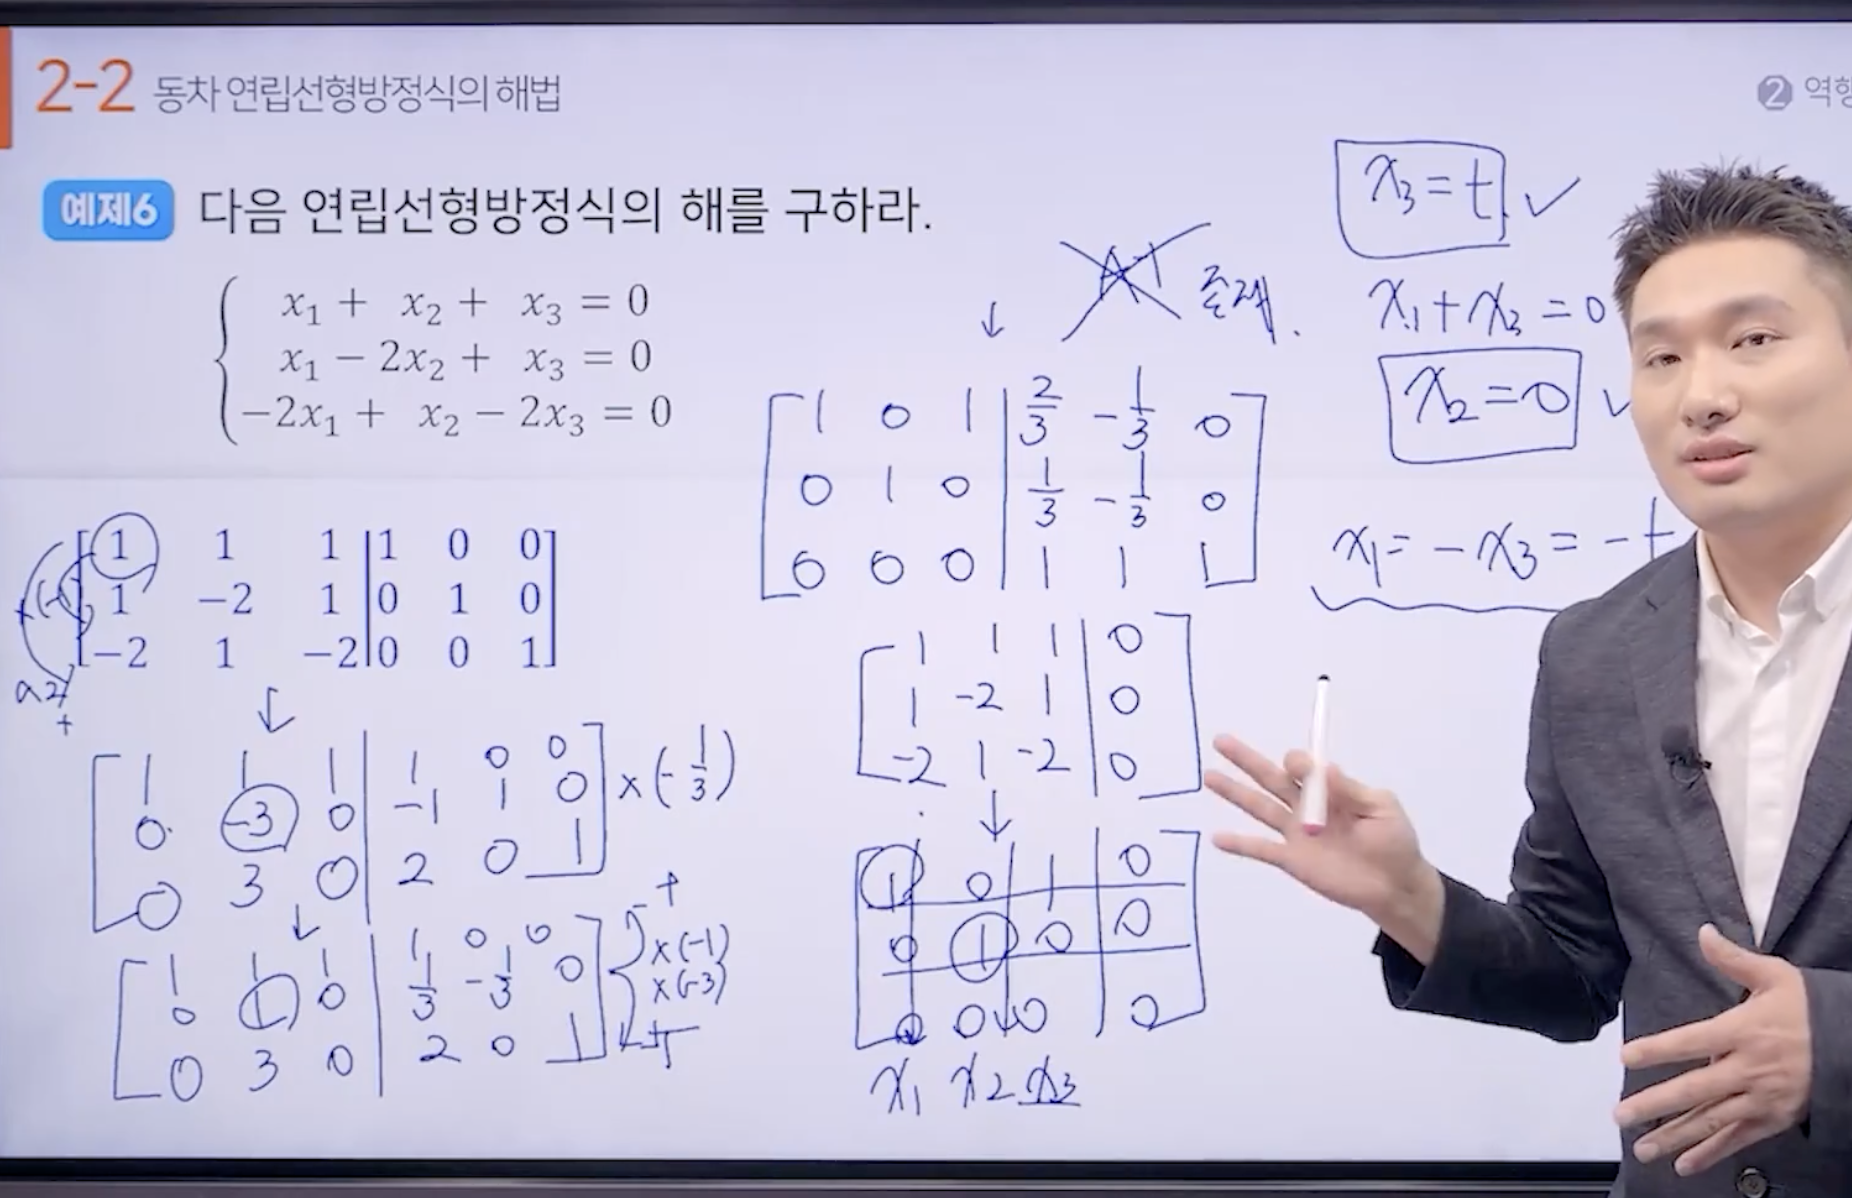 2-2 동차 연립선형방정식의 해법
② 역행
예제6 다음 연립선형방정식의 해를 구하라.
x₁ + x₂ + x₃ = 0
x₁ − 2x₂ + x₃ = 0
−2x₁ + x₂ − 2x₃ = 0
1 1 1 | 1 0 0
1 −2 1 | 0 1 0
−2 1 −2 | 0 0 1
+
1 1 1 | 1 0 0
0 -3 0 | -1 1 0 ×(-1/3)
0 3 0 | 2 0 1
1 1 1 | 1 0 0
0 1 0 | 1/3 -1/3 0
0 3 0 | 2 0 1
+
×(-1)
×(-3)
+
A⁻¹ 존재.
1 0 1 | 2/3 -1/3 0
0 1 0 | 1/3 -1/3 0
0 0 0 | 1 1 1
1 1 1 | 0
1 -2 1 | 0
-2 1 -2 | 0
1 0 1 | 0
0 1 0 | 0
0 0 0 | 0
x₁ x₂ x₃
x₃ = t
x₁ + x₃ = 0
x₂ = 0
x₁ = -x₃ = -t